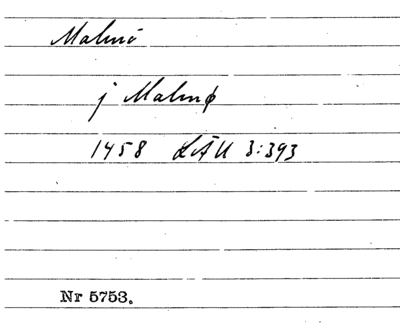 Malmö
j Malmø
1458 LÄU 3:393
Nr 5753.